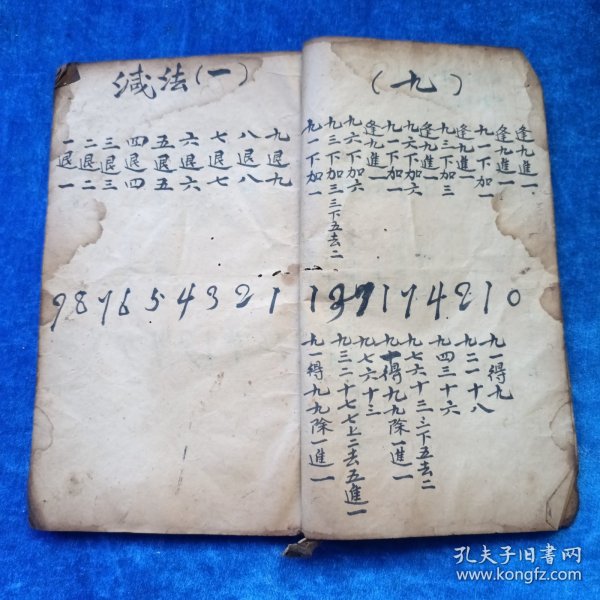 (九)
逢九進一
逢九進一
九一下加一
逢九進一
九三下加三
逢九進一
九六下加六
九一下加一
逢九進一
九六下加六
九三下加三三下五去二
九一下加一
137174210
九一得九
九二一十八
九四三十六
九七六十三三下五去二
九一得九九除一進一
九七六十三
九三二十七七上二去五進一
九一得九九除一進一
減法(一)
九退九
八退八
七退七
六退六
五退五
四退四
三退三
二退二
一退一
987654321
孔夫子旧书网
www.kongfz.com